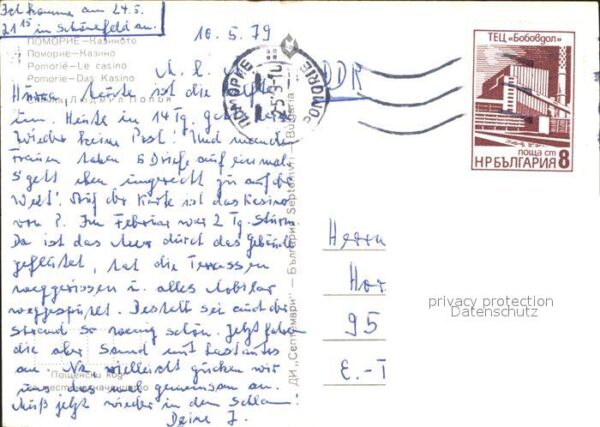 Ich komme am 24.5.
21 15 in Schönefeld an.
10.5.79
ПОМОРИЕ—Казиното
Поморие—Казино
Pomorié—Le casino
Pomorie—Das Kasino
ПОМОРИЕ
POMORIE
DDR
ТЕЦ „Бобовдол"
поща ст
НРБЪЛГАРИЯ 8
heute ist die
um. Heute in 14 Tg.
wieder keine Post! Und manche
Frauen haben 6 Briefe auf einmal.
S'geht eben ungerecht zu auf der
Welt! Auf der Karte ist das Kasino
von P. Im Februar war 2 Tg. Sturm
Da ist das Meer durch das Gebäude
geflutet, hat die Terrassen
weggerissen u. alles Mobiliar
weggespült. Deshalb sei auch der
Strand so wenig schön. Jetzt fahren
die aber Sand mit Lastautos
an. Na, vielleicht gucken wir
uns das mal gemeinsam an.
Muß jetzt wieder in den Schlamm.
Deine J.
Пощенски код
местоназначението
ДИ „Септември" — България Septemvri Bulgaria
Herrn
Hor
95
E.-T
privacy protection
Datenschutz